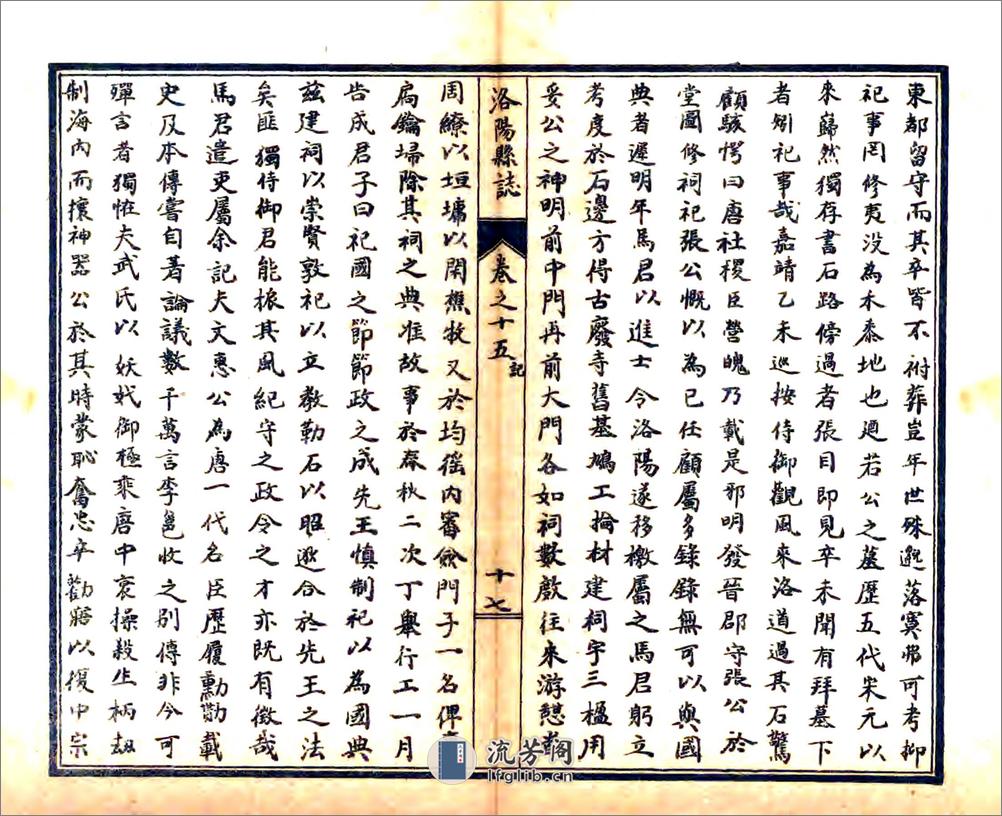 東都留守而其卒皆不祔葬豈年世殊邈落寞弗可考抑
祀事罔修夷没為禾黍地也廼若公之墓歷五代宋元以
來巋然獨存書石路傍過者張目即見卒未聞有拜墓下
者矧祀事哉嘉靖乙未巡按侍御觀風來洛道過其石驚
顧駭愕曰唐社稷臣營魄乃載是邪明發晉郡守張公於
堂圖修祠祀張公慨以為己任顧屬多錄錄無可以與國
典者遲明年馬君以進士令洛陽遂移檄屬之馬君躬立
考度於石邊方得古廢寺舊基鳩工掄材建祠宇三楹用
妥公之神明前中門再前大門各如祠數厰往來游憩者
洛陽縣誌
卷之十五
記
十七
周繚以垣墉以閑樵牧又於均徭内審僉門子一名俾
扃鑰埽除其祠之典准故事於春秋二次丁舉行工一月
告成君子曰祀國之節節政之成先王慎制祀以為國典
兹建祠以崇賢敦祀以立教勒石以昭遯合於先王之法
矣匪獨侍御君能振其風紀守之政令之才亦既有徴哉
馬君遣吏屬余記夫文惠公為唐一代名臣歷履勳勩載
史及本傳嘗自著論議數千萬言李邕收之别傳非今可
殫言者獨恠夫武氏以妖戕御極乘唐中衰操殺生柄刼
制海内而攘神器公於其時蒙恥奮忠卒勸寤以復中宗
流芳阁
lfglib.cn